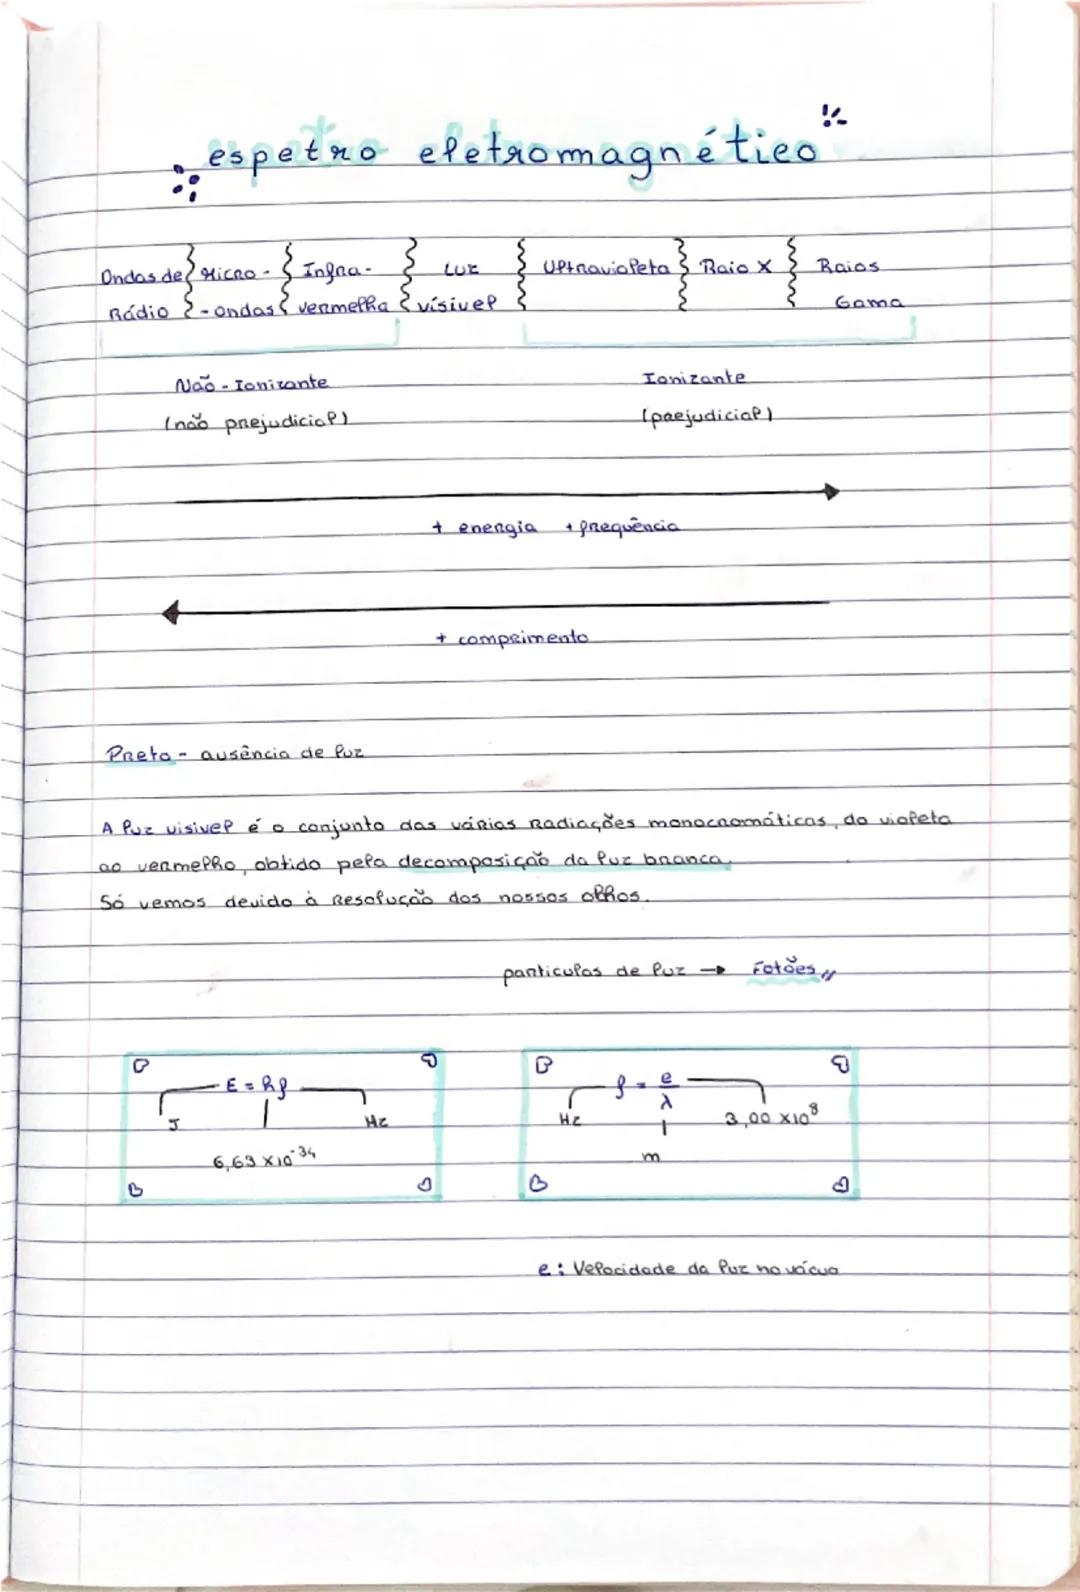 espetro eletromagnético
Ondas de Micro- Infra- Luz Ultravioleta Raio X Raios
Rádio -ondas vermelha visível Gama
Não-Ionizante Ionizante
(não prejudicial) (prejudicial)
+ energia + frequência
+ comprimento
Preto - ausência de luz
A luz visivel é o conjunto das várias radiações monocromáticas, do violeta
ao vermelho, obtido pela decomposição da luz branca.
Só vemos devido à resolução dos nossos olhos.
particulas de luz → Fotões
E = hf
J Hz
6,63 x10^-34
f = c/λ
Hz 3,00 x10^8
m
c: Velocidade da luz no vácuo